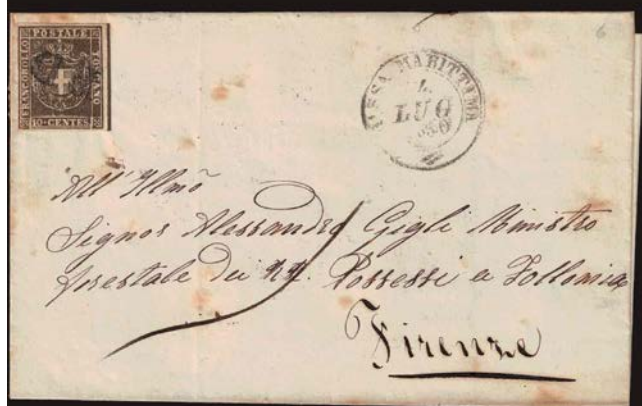 FRANCOBOLLO POSTALE TOSCANO
10 CENTES
MASSA MARITTIMA
4
LUG
1860
6
All' Illmo
Signor Alessandro Gigli Ministro
forestale dei RR. Possessi a Follonica
Firenze